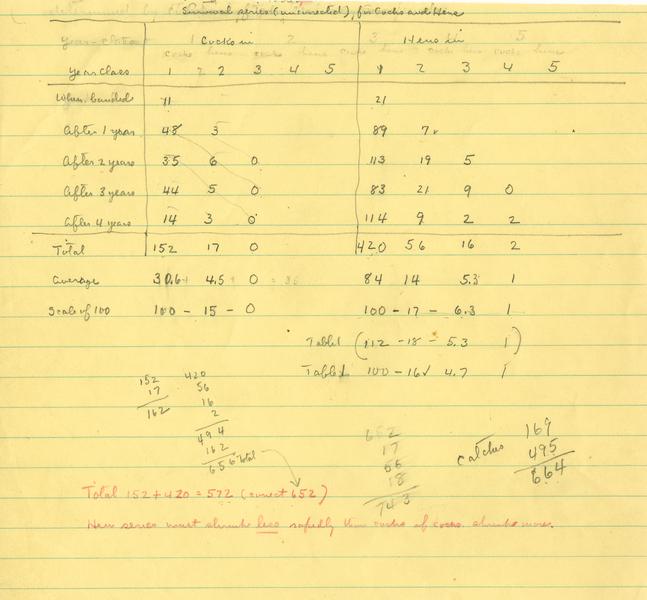 Survival series (uncorrected), for Cocks and Hens
Year- Cocks in 2 3 Hens in 5
cocks hens cocks hens cocks hens cocks hens cocks hens
Year Class 1 2 2 3 4 5 1 2 3 4 5
When banded 11 21
After 1 year 48 3 89 7
After 2 years 35 6 0 113 19 5
After 3 years 44 5 0 83 21 9 0
After 4 years 14 3 0 114 9 2 2
Total 152 17 0 420 56 16 2
Average 30.6 4.5 0 84 14 5.3 1
Scale of 100 100 - 15 - 0 100 - 17 - 6.3 1
Table 1 (112 - 18 - 5.3 1)
Table 1 100 - 16 √ 4.7 1
152 420
17 56
162 16
2
494
162
656 Total
652
17
66
18
743
Catches 169
495
664
Total 152 + 420 = 572 (correct 652)
Hen series must shrink less rapidly than cocks if cocks shrink more.